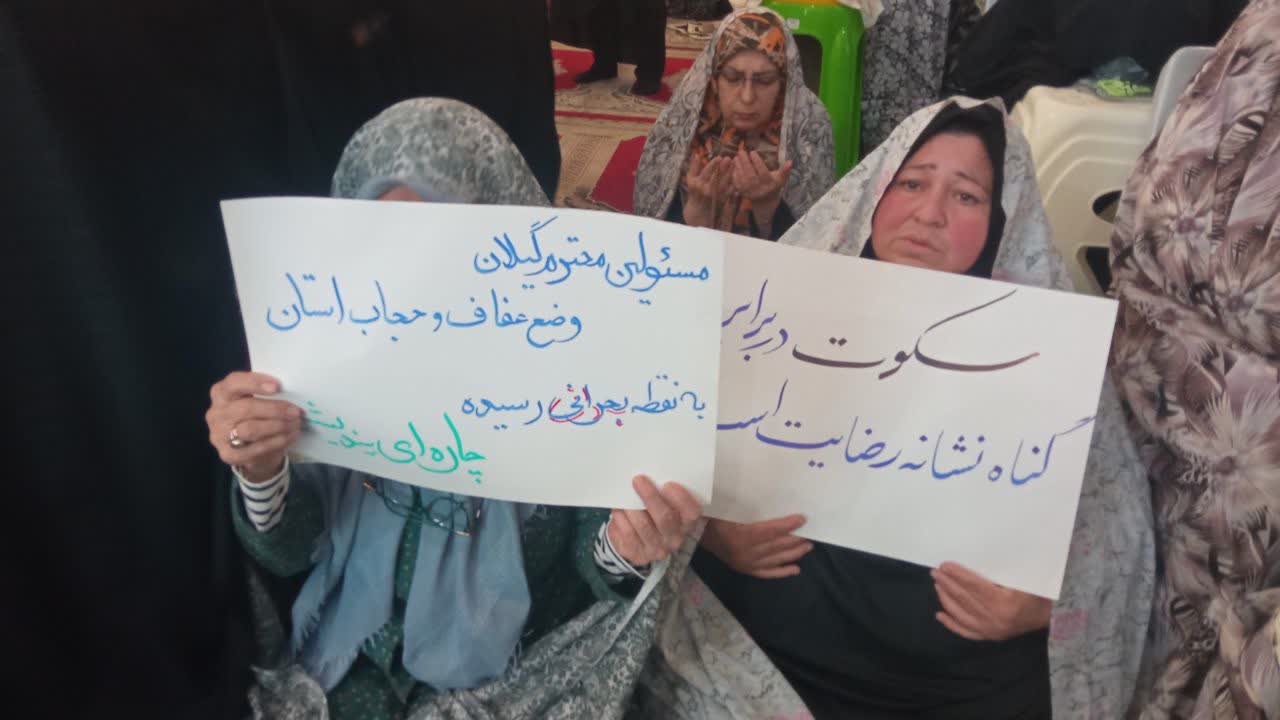 مسئولین محترم گیلان
وضع عفاف و حجاب استان
به نقطه بحرانی رسیده
چاره ای بیندیشید
سکوت در برابر
گناه نشانه رضایت است